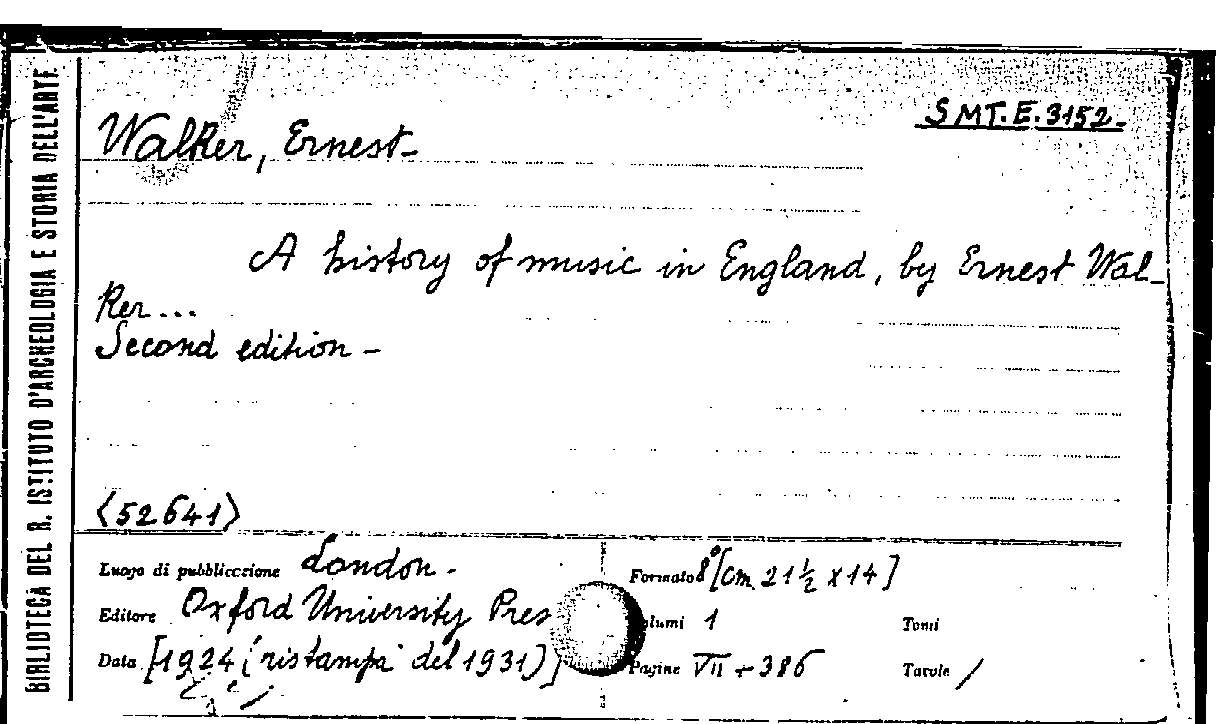 BIBLIOTECA DEL R. ISTITUTO D'ARCHEOLOGIA E STORIA DELL'ARTE
SMT.E.3152-
Walker, Ernest-
A history of music in England, by Ernest Wal-
ker...
Second edition-
<52641>
Luogo di pubblicazione London-
Formato 8° [cm 21½ x 14]
Editore Oxford University Pres
Volumi 1 Tomi
Data [1924 (ristampa del 1931)]
Pagine VII-386 Tavole /